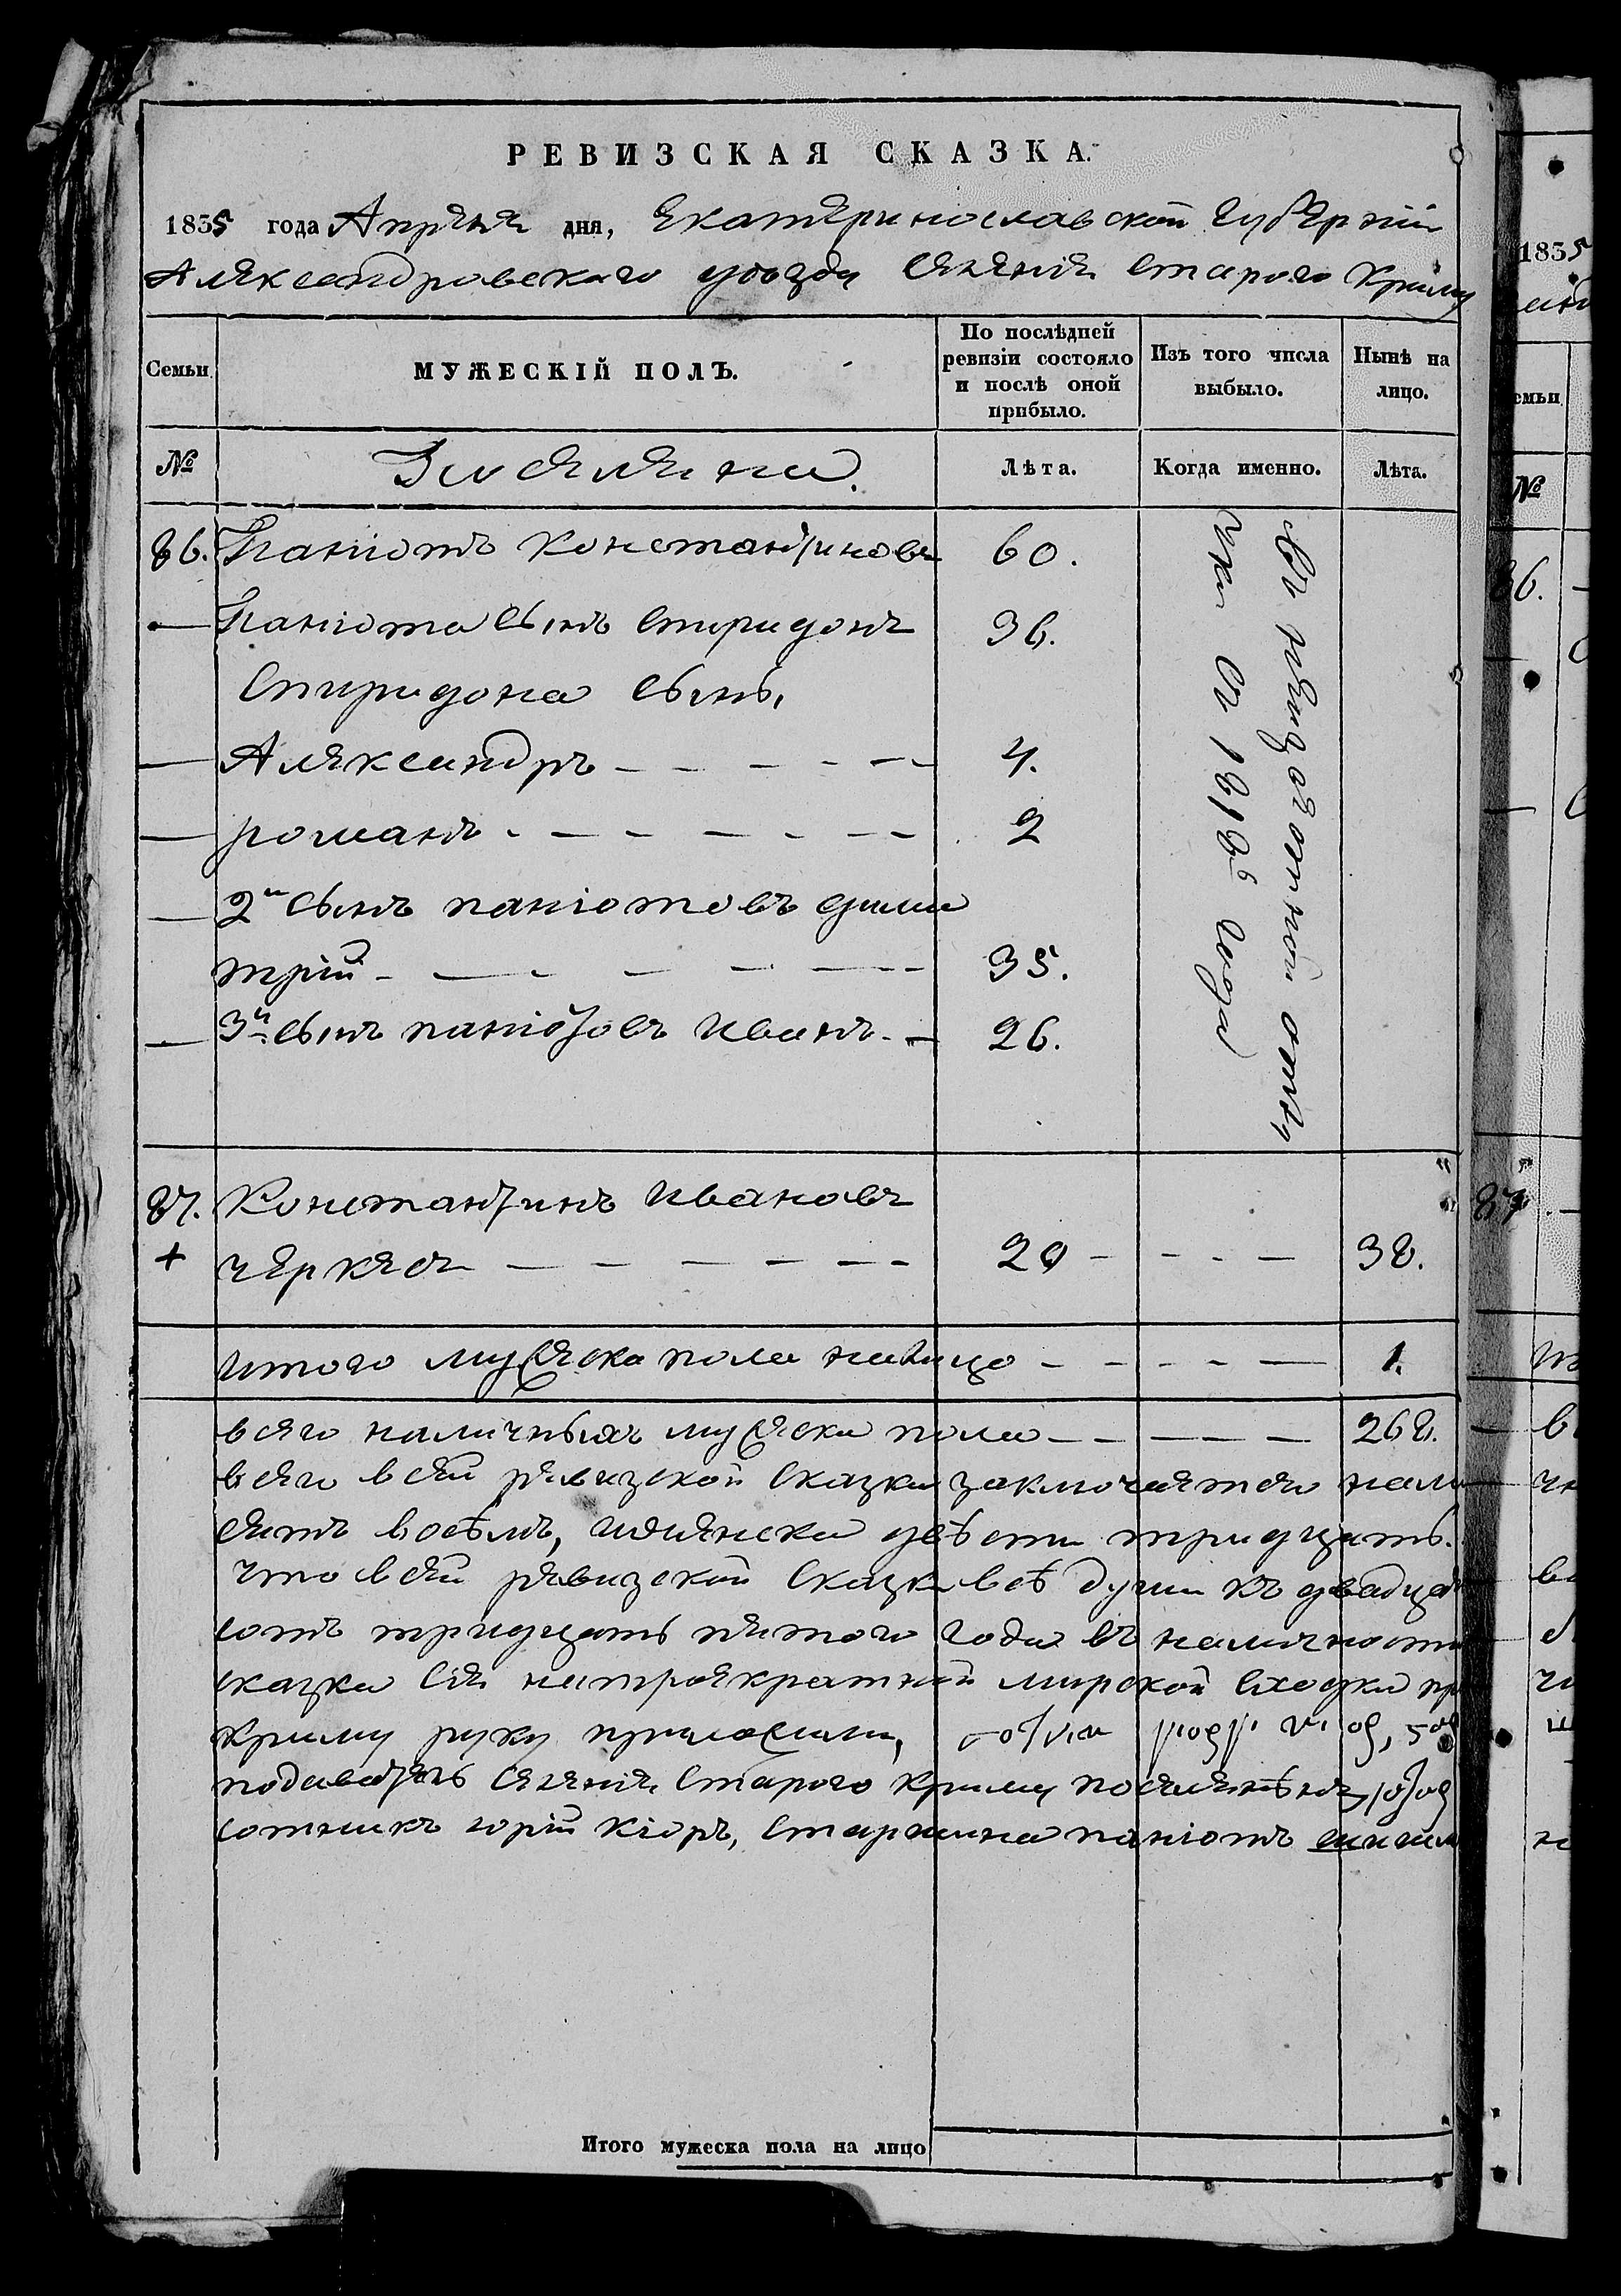 РЕВИЗСКАЯ СКАЗКА.
1835 года Апреля дня, Екатеринославской губерніи
Александровскаго уезда Селенія Стараго Крима
Семьи
МУЖЕСКІЙ ПОЛЪ.
По послѣдней ревизіи состояло и послѣ оной прибыло.
Изъ того числа выбыло.
Нынѣ на лицо.
№
Лѣта.
Когда именно.
Лѣта.
86. Паніотъ Константиновъ 60.
— Паніота сынъ Спиридонъ 36.
Спиридона сынъ,
— Александръ — — — 4.
— романъ — — — 2
— 2й сынъ паніотовъ дими
трій — — — 35.
— 3й сынъ паніотовъ Иванъ — 26.
въ 1818ь года
87. Константинъ Ивановъ
+ — — — 20 — — — 38.
итого мужеска пола налицо — — — 1.
всего наличныхъ мужеска пола — — — 268.
всего всей ревизской сказки заключается нали
сятъ восѣмъ, женска двѣсти тридцать.
что всей ревизской сказки всѣ души къ двадца
сотъ тридцать пятого года въ наличности
сказка сія натроекратной мирской сходки пр
Криму руку приложили,
подаватель селенія Стараго Криму поселянинъ
сотникъ юрій Кіоръ, Старшина паніотъ
Итого мужеска пола на лицо
1835
емьи
№
86.
87.